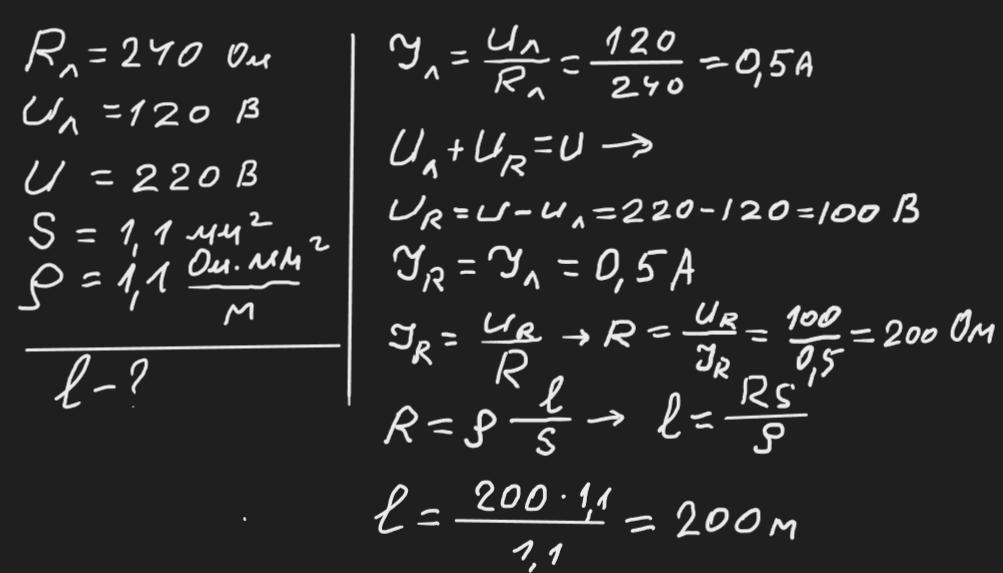 Rл = 240 Ом
Uл = 120 В
U = 220 В
S = 1,1 мм²
ρ = 1,1 Ом·мм²/м
l - ?
Iл = Uл/Rл = 120/240 = 0,5 А
Uл + UR = U →
UR = U - Uл = 220 - 120 = 100 В
IR = Iл = 0,5 А
IR = UR/R → R = UR/IR = 100/0,5 = 200 Ом
R = ρ l/S → l = RS/ρ
l = 200 · 1,1/1,1 = 200 м